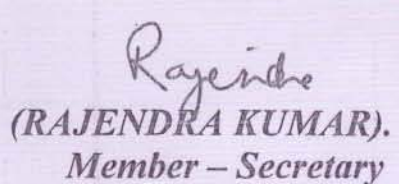 Rajendra
(RAJENDRA KUMAR).
Member – Secretary